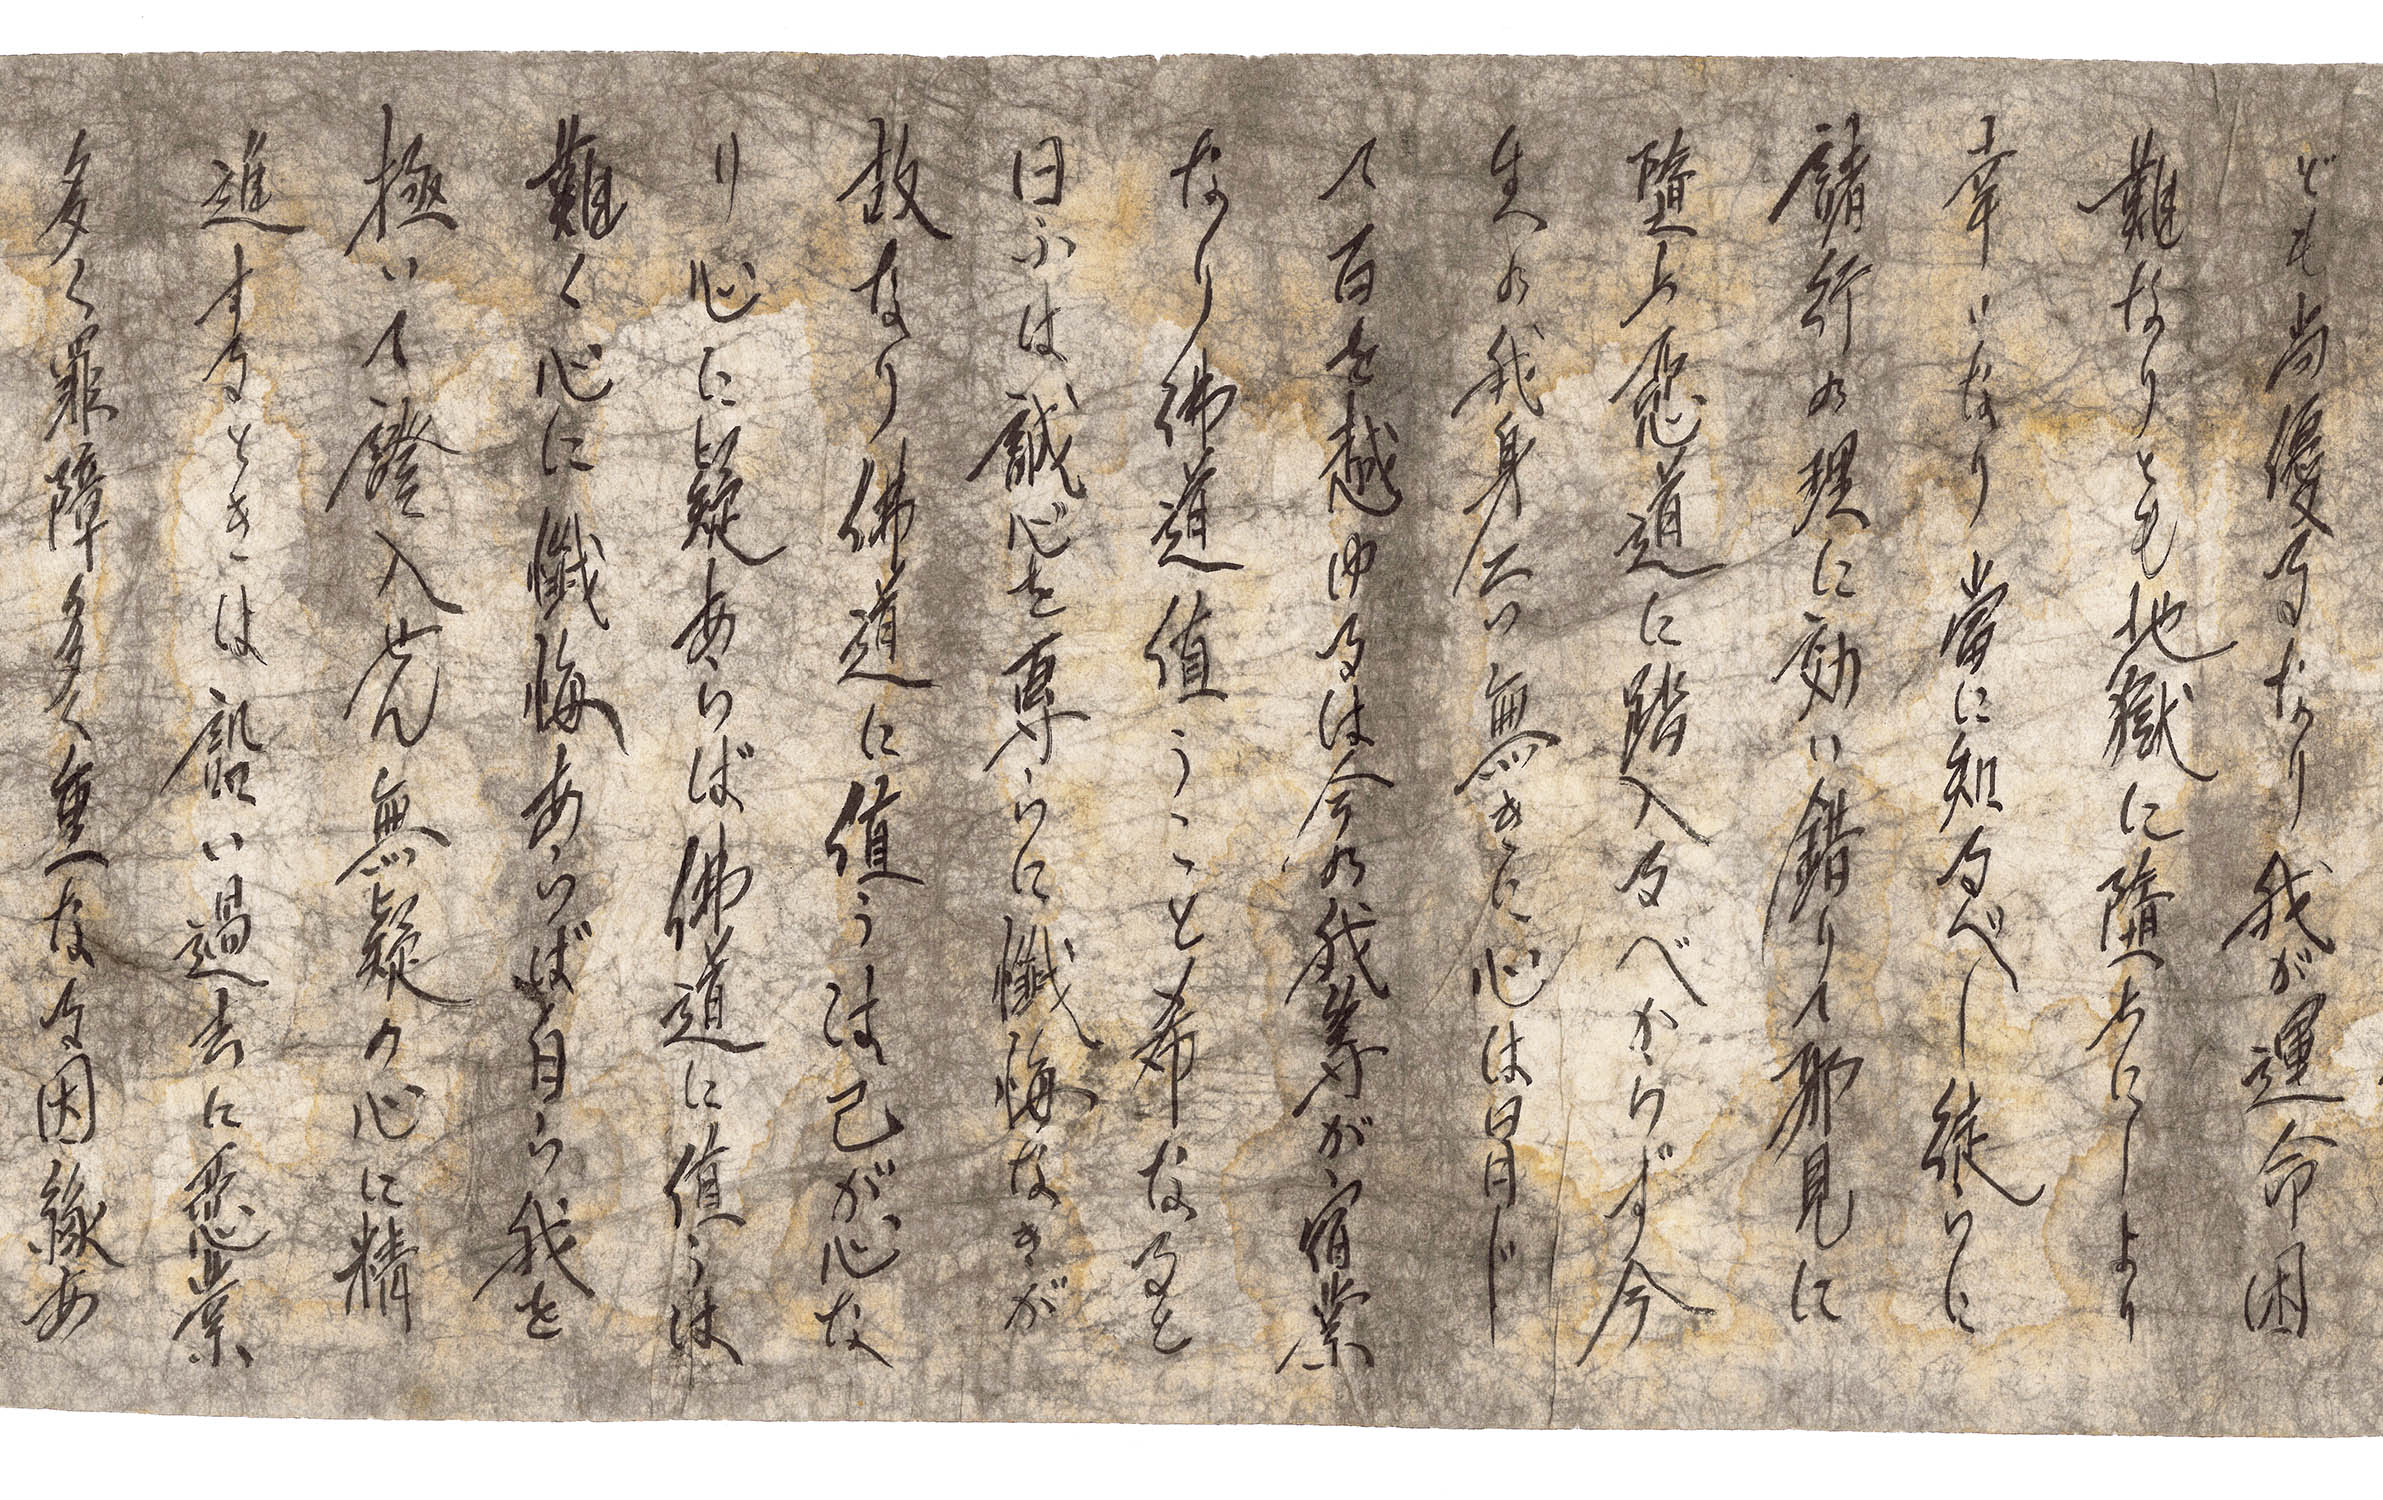 ども尚優るなり我が運命困
難なりとも地獄に墮ちにしより
幸いなり當に知るべし徒らに
諸行の理に効い錯りて邪見に
墮ち惡道に踏入るべからず今
生の我身二つ無きに心は曰月じ
て百を越ゆるは今の我等が宿業
なり佛道値うこと希なると
曰ふは誠心を專らに懺悔なきが
故なり佛道に値うは己が心な
り心に疑あらば佛道に値うは
難く心に懺悔あらば自ら我を
極いて證入せん無疑の心に精
進するときは詔い過去に惡業
多く罪障多く重なる因縁あ